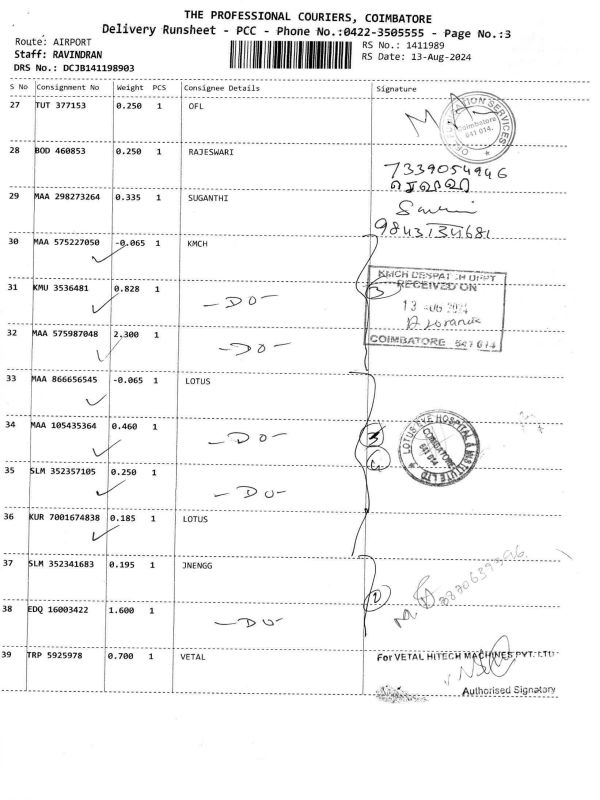 THE PROFESSIONAL COURIERS, COIMBATORE
Delivery Runsheet - PCC - Phone No.:0422-3505555 - Page No.:3
Route: AIRPORT
RS No.: 1411989
Staff: RAVINDRAN
RS Date: 13-Aug-2024
DRS No.: DCJB141198903
S No Consignment No Weight PCS Consignee Details Signature
27 TUT 377153 0.250 1 OFL
Coimbatore
641 014.
28 BOD 460853 0.250 1 RAJESWARI
7339054946
29 MAA 298273264 0.335 1 SUGANTHI
9843134681
30 MAA 575227050 -0.065 1 KMCH
KMCH DESPATCH DEPT
RECEIVED ON
31 KMU 3536481 0.828 1 -DO-
3
13 AUG 2024
32 MAA 575987048 2.300 1 -DO-
COIMBATORE 641 014
33 MAA 866656545 -0.065 1 LOTUS
34 MAA 105435364 0.460 1 -DO-
LOTUS EYE HOSPITAL & INSTITUTE LTD
COIMBATORE
641 014.
4
35 SLM 352357105 0.250 1 -DO-
36 KUR 7001674838 0.185 1 LOTUS
37 SLM 352341683 0.195 1 JNENGG
38 EDQ 16003422 1.600 1 -DO-
39 TRP 5925978 0.700 1 VETAL
For VETAL HITECH MACHINES PVT. LTD
Authorised Signatory